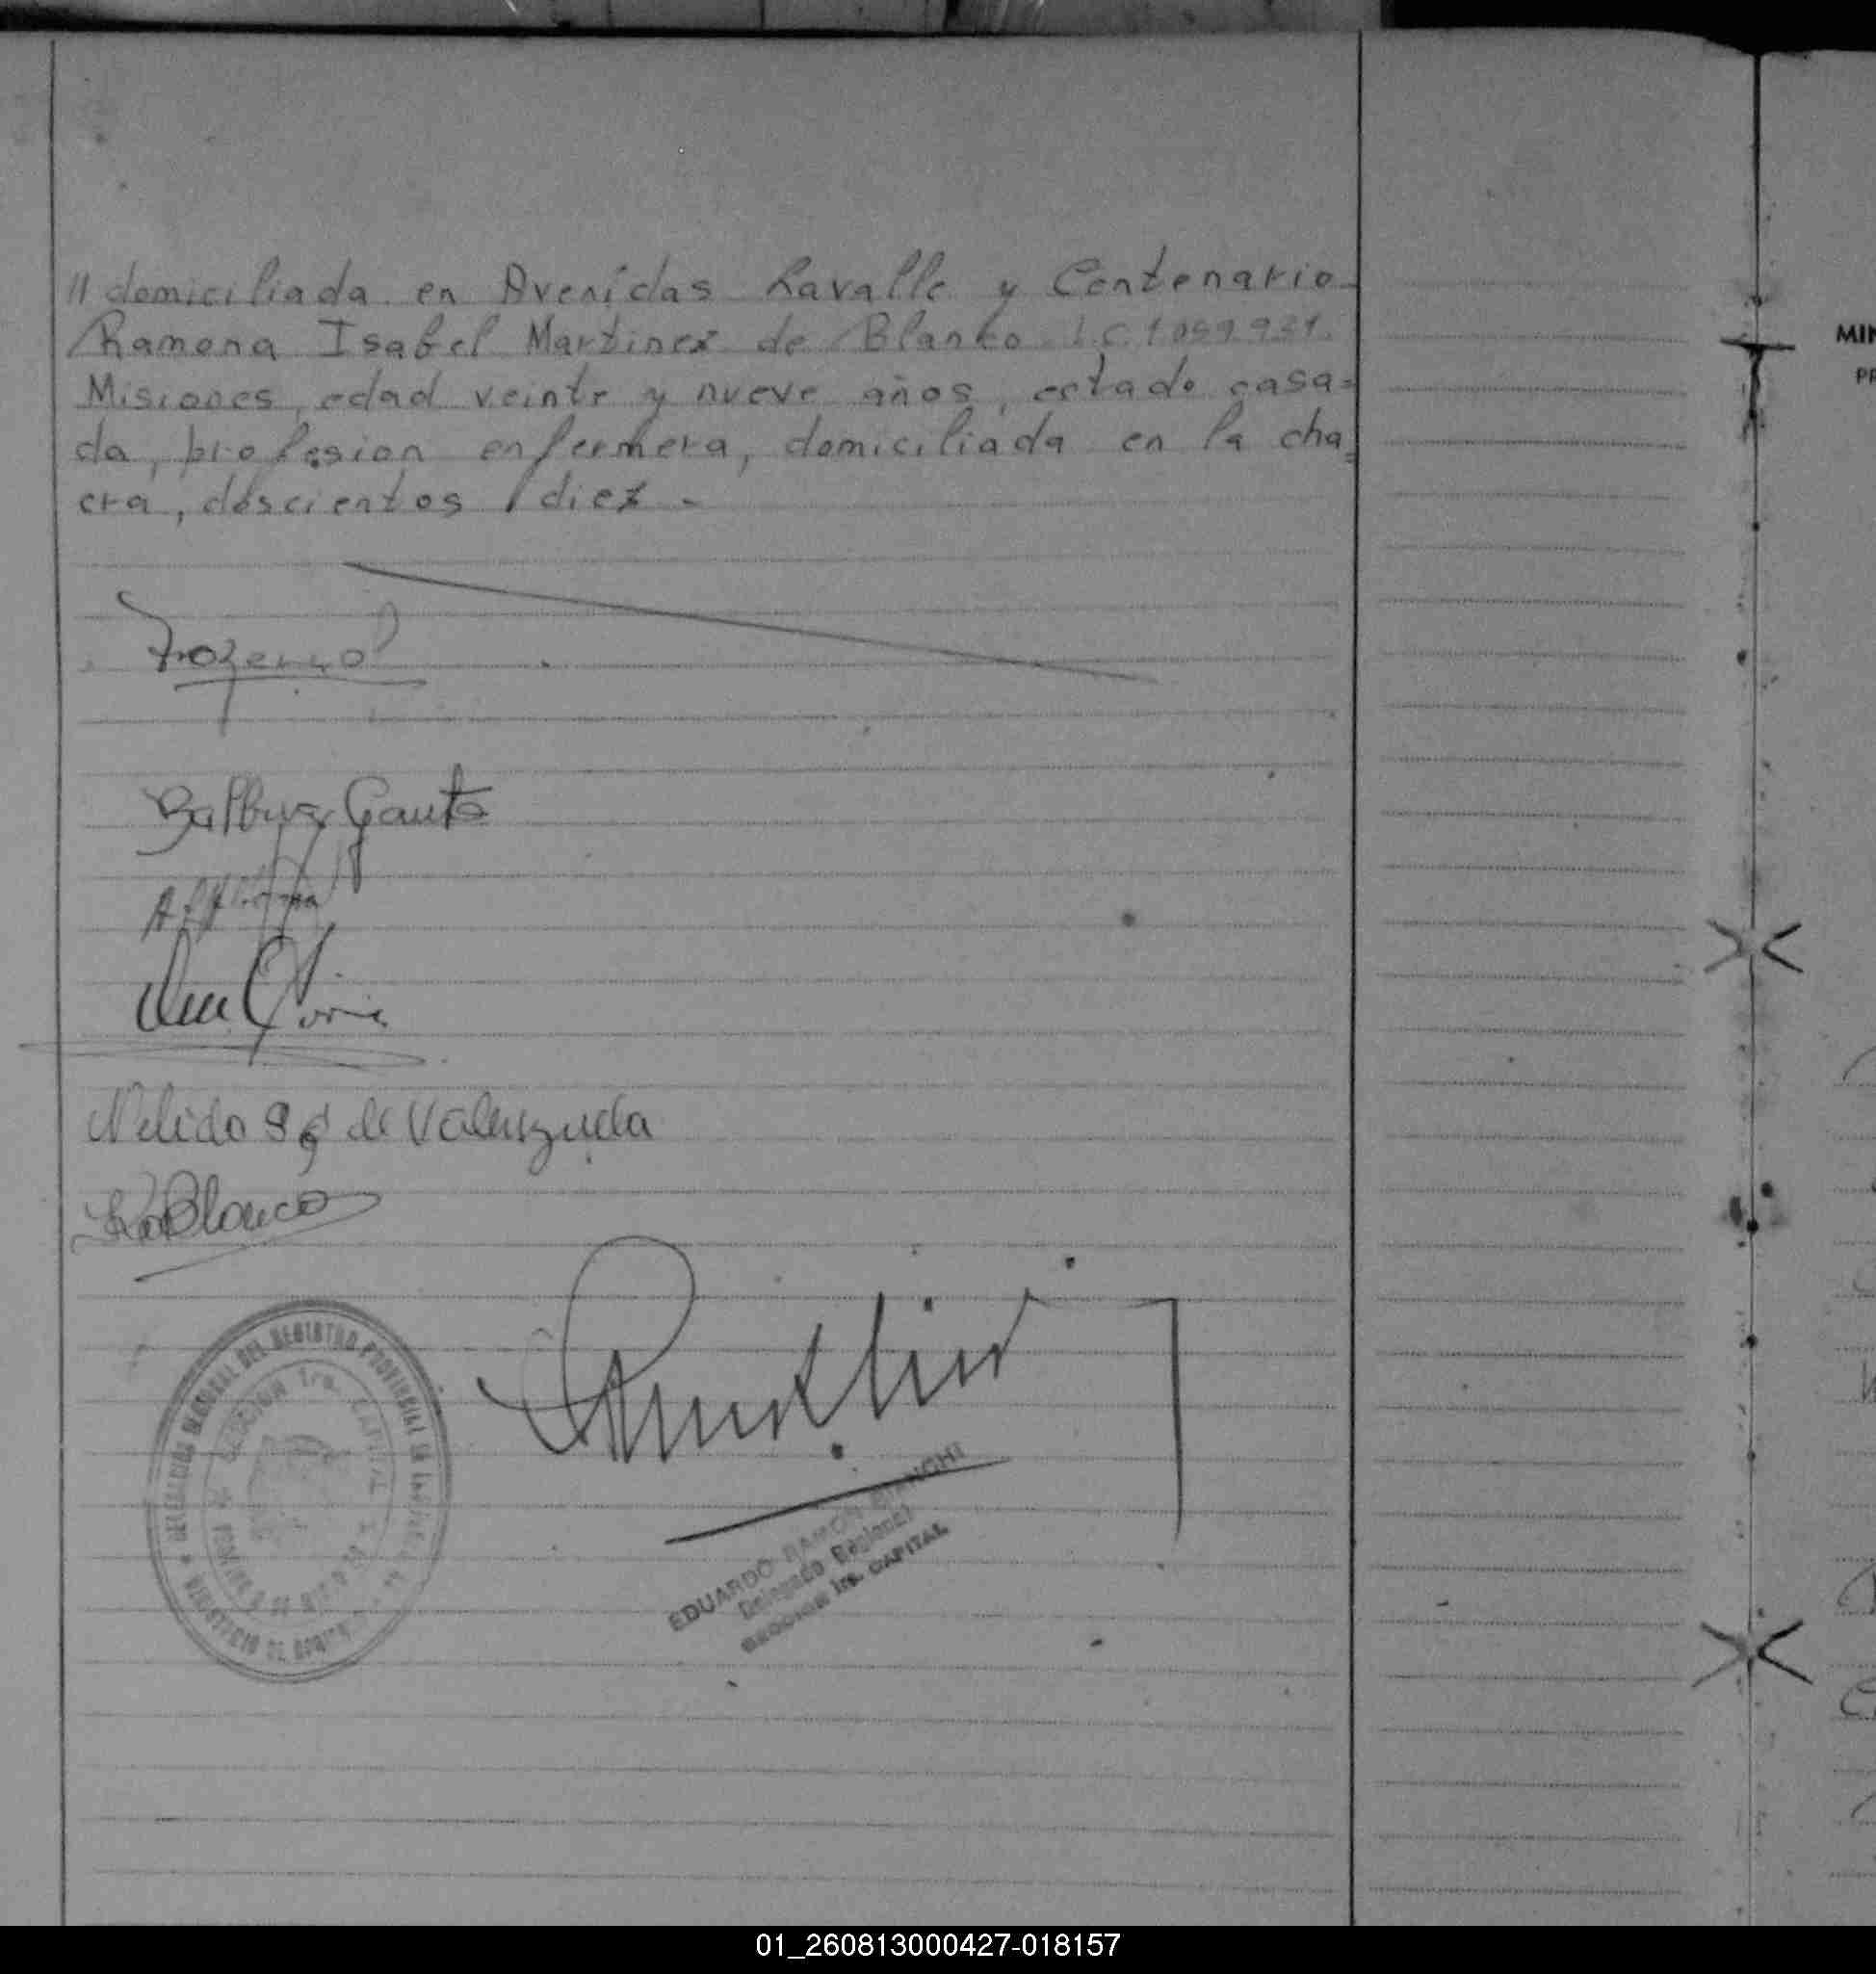 // domiciliada en Avenidas Lavalle y Centenario-
Ramona Isabel Martinez de Blanco L.C. 1.059.931.
Misiones, edad veinte y nueve años, estado casa=
da, profesion enfermera, domiciliada en la cha=
cra, doscientos diez -
Gauto
Nelida de Valenzuela
Blanco
DELEGACION REGIONAL DEL REGISTRO PROVINCIAL DE LAS
SECCION 1ra. CAPITAL
EDUARDO RAMON BIANCHI
Delegado Regional
SECCION 1ra. CAPITAL
MIN
PR
01_260813000427-018157